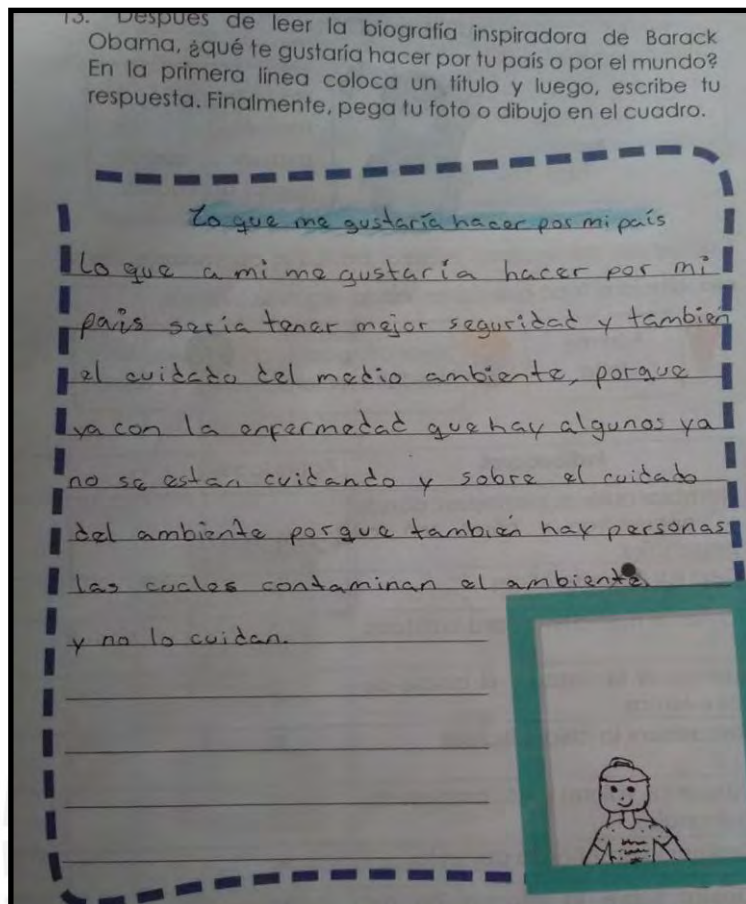 13. Después de leer la biografía inspiradora de Barack
Obama, ¿qué te gustaría hacer por tu país o por el mundo?
En la primera línea coloca un título y luego, escribe tu
respuesta. Finalmente, pega tu foto o dibujo en el cuadro.
Lo que me gustaría hacer por mi país
Lo que a mi me gustaría hacer por mi
país sería tener mejor seguridad y también
el cuidado del medio ambiente, porque
ya con la enfermedad que hay algunos ya
no se estan cuidando y sobre el cuidado
del ambiente porque también hay personas
las cuales contaminan el ambiente
y no lo cuidan.